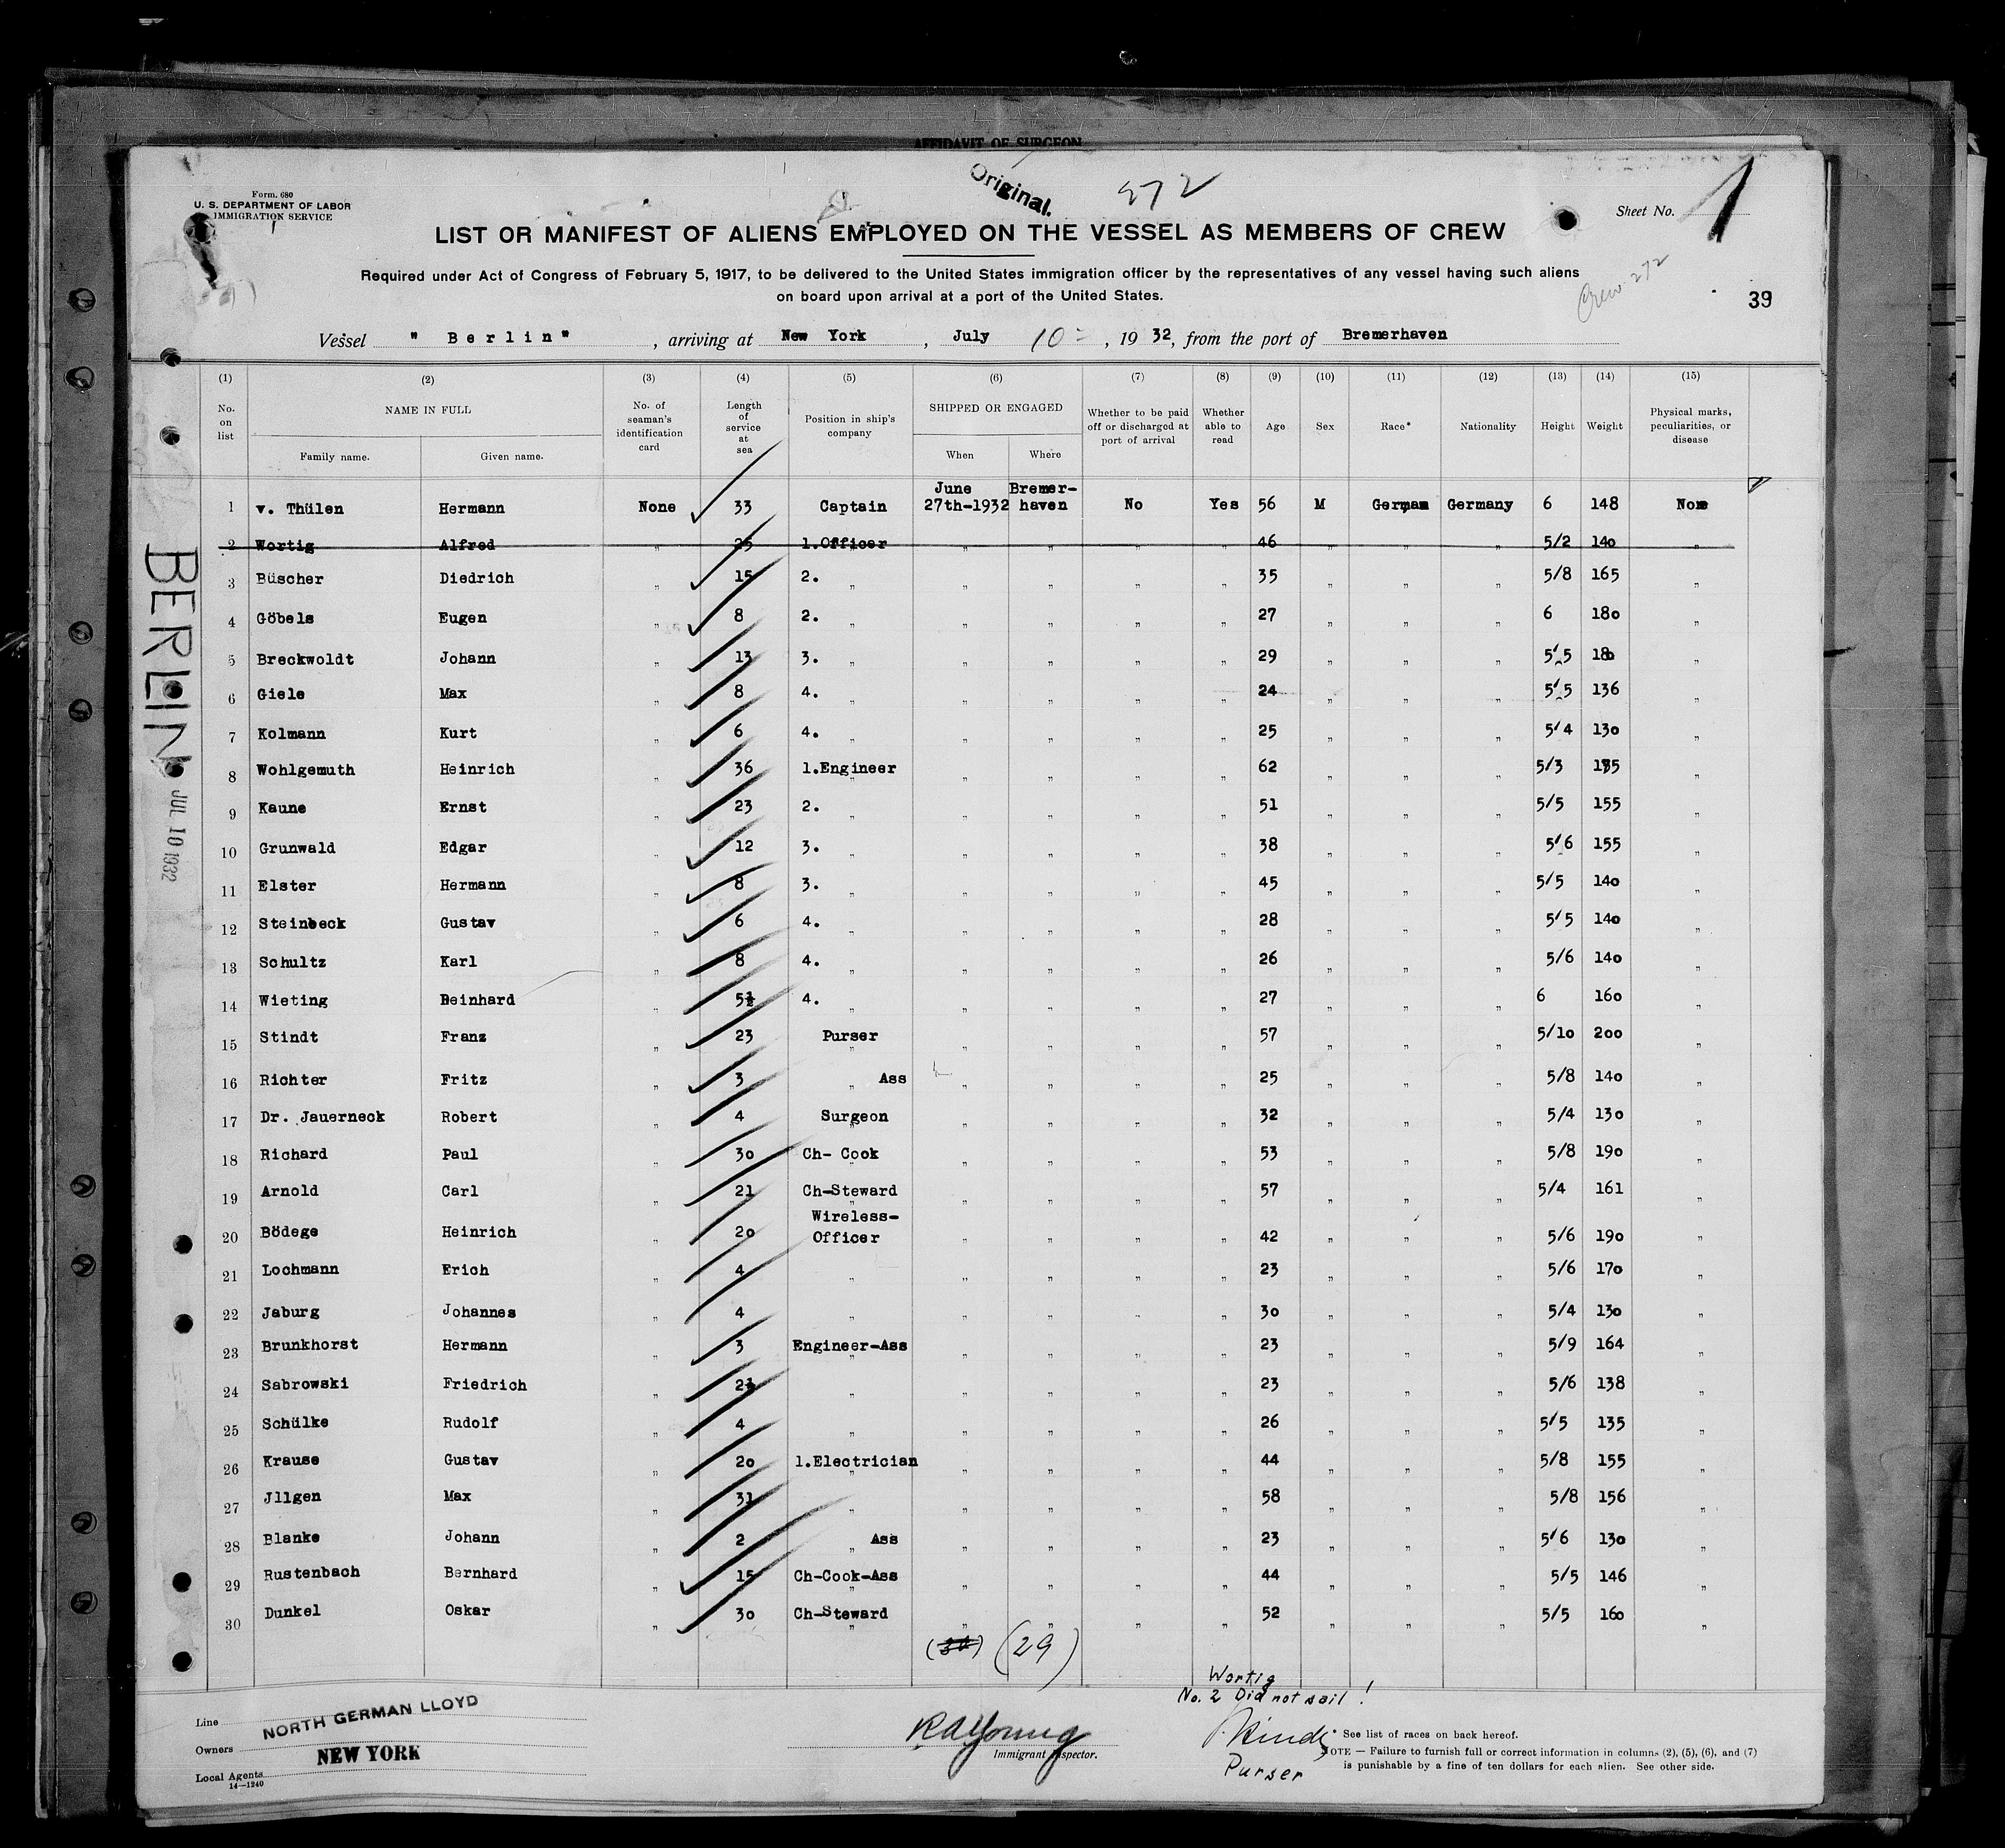 AFFIDAVIT OF SURGEON
Original.
272
Form. 680
U. S. DEPARTMENT OF LABOR
IMMIGRATION SERVICE
Sheet No. 1
LIST OR MANIFEST OF ALIENS EMPLOYED ON THE VESSEL AS MEMBERS OF CREW
Required under Act of Congress of February 5, 1917, to be delivered to the United States immigration officer by the representatives of any vessel having such aliens
on board upon arrival at a port of the United States.
Crew 272
39
Vessel "Berlin", arriving at New York, July 10, 1932, from the port of Bremerhaven
(1) (2) (3) (4) (5) (6) (7) (8) (9) (10) (11) (12) (13) (14) (15)
No. on list
NAME IN FULL
Family name. Given name.
No. of seaman's identification card
Length of service at sea
Position in ship's company
SHIPPED OR ENGAGED
When Where
Whether to be paid off or discharged at port of arrival
Whether able to read
Age
Sex
Race*
Nationality
Height
Weight
Physical marks, peculiarities, or disease
1 v. Thülen Hermann None 33 Captain June 27th-1932 Bremer-haven No Yes 56 M German Germany 6 148 None
2 Wortig Alfred " 25 1.Officer " " " " 46 " " " 5/2 140 "
3 Büscher Diedrich " 15 2. " " " " " 35 " " " 5/8 165 "
4 Göbels Eugen " 8 2. " " " " " 27 " " " 6 180 "
5 Breckwoldt Johann " 13 3. " " " " " 29 " " " 5/5 180 "
6 Giele Max " 8 4. " " " " " 24 " " " 5/5 136 "
7 Kolmann Kurt " 6 4. " " " " " 25 " " " 5/4 130 "
8 Wohlgemuth Heinrich " 36 1.Engineer " " " " 62 " " " 5/3 "
9 Kaune Ernst " 23 2. " " " " " 51 " " " 5/5 155 "
10 Grunwald Edgar " 12 3. " " " " " 38 " " " 5/6 155 "
11 Elster Hermann " 8 3. " " " " " 45 " " " 5/5 140 "
12 Steinbeck Gustav " 6 4. " " " " " 28 " " " 5/5 140 "
13 Schultz Karl " 8 4. " " " " " 26 " " " 5/6 140 "
14 Wieting Reinhard " 5½ 4. " " " " " 27 " " " 6 160 "
15 Stindt Franz " 23 Purser " " " " 57 " " " 5/10 200 "
16 Richter Fritz " 3 " Ass " " " " 25 " " " 5/8 140 "
17 Dr. Jauerneck Robert " 4 Surgeon " " " " 32 " " " 5/4 130 "
18 Richard Paul " 30 Ch- Cook " " " " 53 " " " 5/8 190 "
19 Arnold Carl " 21 Ch-Steward " " " " 57 " " " 5/4 161 "
20 Bödege Heinrich " 20 Wireless-Officer " " " " 42 " " " 5/6 190 "
21 Lochmann Erich " 4 " " " " " 23 " " " 5/6 170 "
22 Jaburg Johannes " 4 " " " " " 30 " " " 5/4 130 "
23 Brunkhorst Hermann " 3 Engineer-Ass " " " " 23 " " " 5/9 164 "
24 Sabrowski Friedrich " 2½ " " " " " 23 " " " 5/6 138 "
25 Schülke Rudolf " 4 " " " " " 26 " " " 5/5 135 "
26 Krause Gustav " 20 1.Electrician " " " " 44 " " " 5/8 155 "
27 Jllgen Max " 31 " " " " " 58 " " " 5/8 156 "
28 Blanke Johann " 2 " Ass " " " " 23 " " " 5/6 130 "
29 Rustenbach Bernhard " 15 Ch-Cook-Ass " " " " 44 " " " 5/5 146 "
30 Dunkel Oskar " 30 Ch-Steward " " " " 52 " " " 5/5 160 "
BERLIN
JUL 10 1932
(30) (29)
Wortig
No. 2 Did not sail!
Purser
Line NORTH GERMAN LLOYD
Owners NEW YORK
Local Agents
14-1240
RA Young
Immigrant Inspector.
* See list of races on back hereof.
NOTE — Failure to furnish full or correct information in columns (2), (5), (6), and (7)
is punishable by a fine of ten dollars for each alien. See other side.